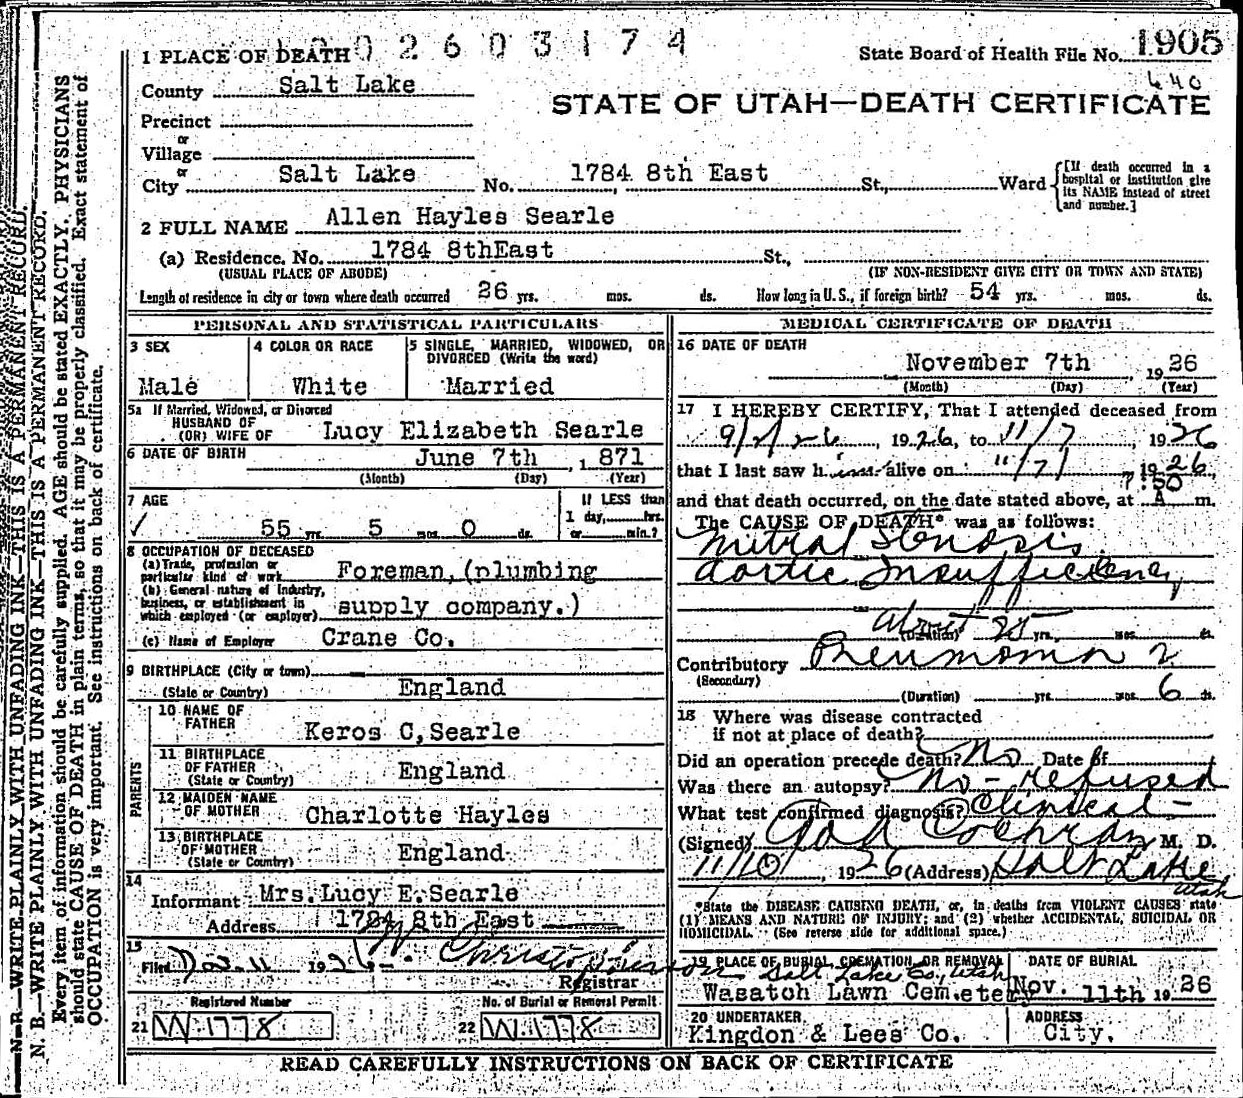 2603174
1 PLACE OF DEATH
State Board of Health File No. 1905
County Salt Lake
640
STATE OF UTAH—DEATH CERTIFICATE
Precinct
or
Village
or
City Salt Lake No. 1784 8th East St., Ward
[If death occurred in a hospital or institution give its NAME instead of street and number.]
2 FULL NAME Allen Hayles Searle
(a) Residence, No. 1784 8thEast St.,
(USUAL PLACE OF ABODE) (IF NON-RESIDENT GIVE CITY OR TOWN AND STATE)
Length of residence in city or town where death occurred 26 yrs. mos. ds. How long in U. S., if foreign birth? 54 yrs. mos. ds.
PERSONAL AND STATISTICAL PARTICULARS
3 SEX
Male
4 COLOR OR RACE
White
5 SINGLE, MARRIED, WIDOWED, OR
DIVORCED (Write the word)
Married
5a If Married, Widowed, or Divorced
HUSBAND OF
(OR) WIFE OF Lucy Elizabeth Searle
6 DATE OF BIRTH June 7th , 1871
(Month) (Day) (Year)
7 AGE
55 yrs. 5 mos. 0 ds.
If LESS than
1 day, hrs.
or min.?
8 OCCUPATION OF DECEASED
(a) Trade, profession or
particular kind of work Foreman, (plumbing
(b) General nature of Industry,
business, or establishment in
which employed (or employer) supply company.)
(c) Name of Employer Crane Co.
9 BIRTHPLACE (City or town)
(State or Country) England
PARENTS
10 NAME OF
FATHER Keros C, Searle
11 BIRTHPLACE
OF FATHER
(State or Country) England
12 MAIDEN NAME
OF MOTHER Charlotte Hayles
13 BIRTHPLACE
OF MOTHER
(State or Country) England
14
Informant Mrs. Lucy E. Searle
Address 1784 8th East
15
Filed Nov. 11 1926. Christopherson
Registrar
Registered Number
21 W.1778
No. of Burial or Removal Permit
22 W.1778
MEDICAL CERTIFICATE OF DEATH
16 DATE OF DEATH
November 7th , 1926
(Month) (Day) (Year)
17 I HEREBY CERTIFY, That I attended deceased from
9/2/26 , 1926, to 11/7 , 1926
that I last saw him alive on 11/7/ 1926,
7:50
and that death occurred, on the date stated above, at A m.
The CAUSE OF DEATH* was as follows:
Mitral Stenosis
Aortic Insufficiency
About 25
(Duration) yrs. mos. ds.
Contributory Pneumonia
(Secondary)
(Duration) yrs. mos. 6 ds.
18 Where was disease contracted
if not at place of death?
Did an operation precede death? No Date of
Was there an autopsy? No - refused
What test confirmed diagnosis? Clinical -
(Signed) Cochran, M. D.
11/10/ , 1926 (Address) Salt Lake
Utah
*State the DISEASE CAUSING DEATH, or, in deaths from VIOLENT CAUSES state
(1) MEANS AND NATURE OF INJURY; and (2) whether ACCIDENTAL, SUICIDAL OR
HOMICIDAL. (See reverse side for additional space.)
19 PLACE OF BURIAL, CREMATION OR REMOVAL
Salt Lake Co, Utah
Wasatch Lawn Cemetery
DATE OF BURIAL
Nov. 11th 1926
20 UNDERTAKER
Kingdon & Lees Co.
ADDRESS
City.
READ CAREFULLY INSTRUCTIONS ON BACK OF CERTIFICATE
N. B.—WRITE PLAINLY WITH UNFADING INK—THIS IS A PERMANENT RECORD.
N. B.—WRITE PLAINLY WITH UNFADING INK—THIS IS A PERMANENT RECORD.
Every item of information should be carefully supplied. AGE should be stated EXACTLY. PHYSICIANS
should state CAUSE OF DEATH in plain terms, so that it may be properly classified. Exact statement of
OCCUPATION is very important. See instructions on back of certificate.